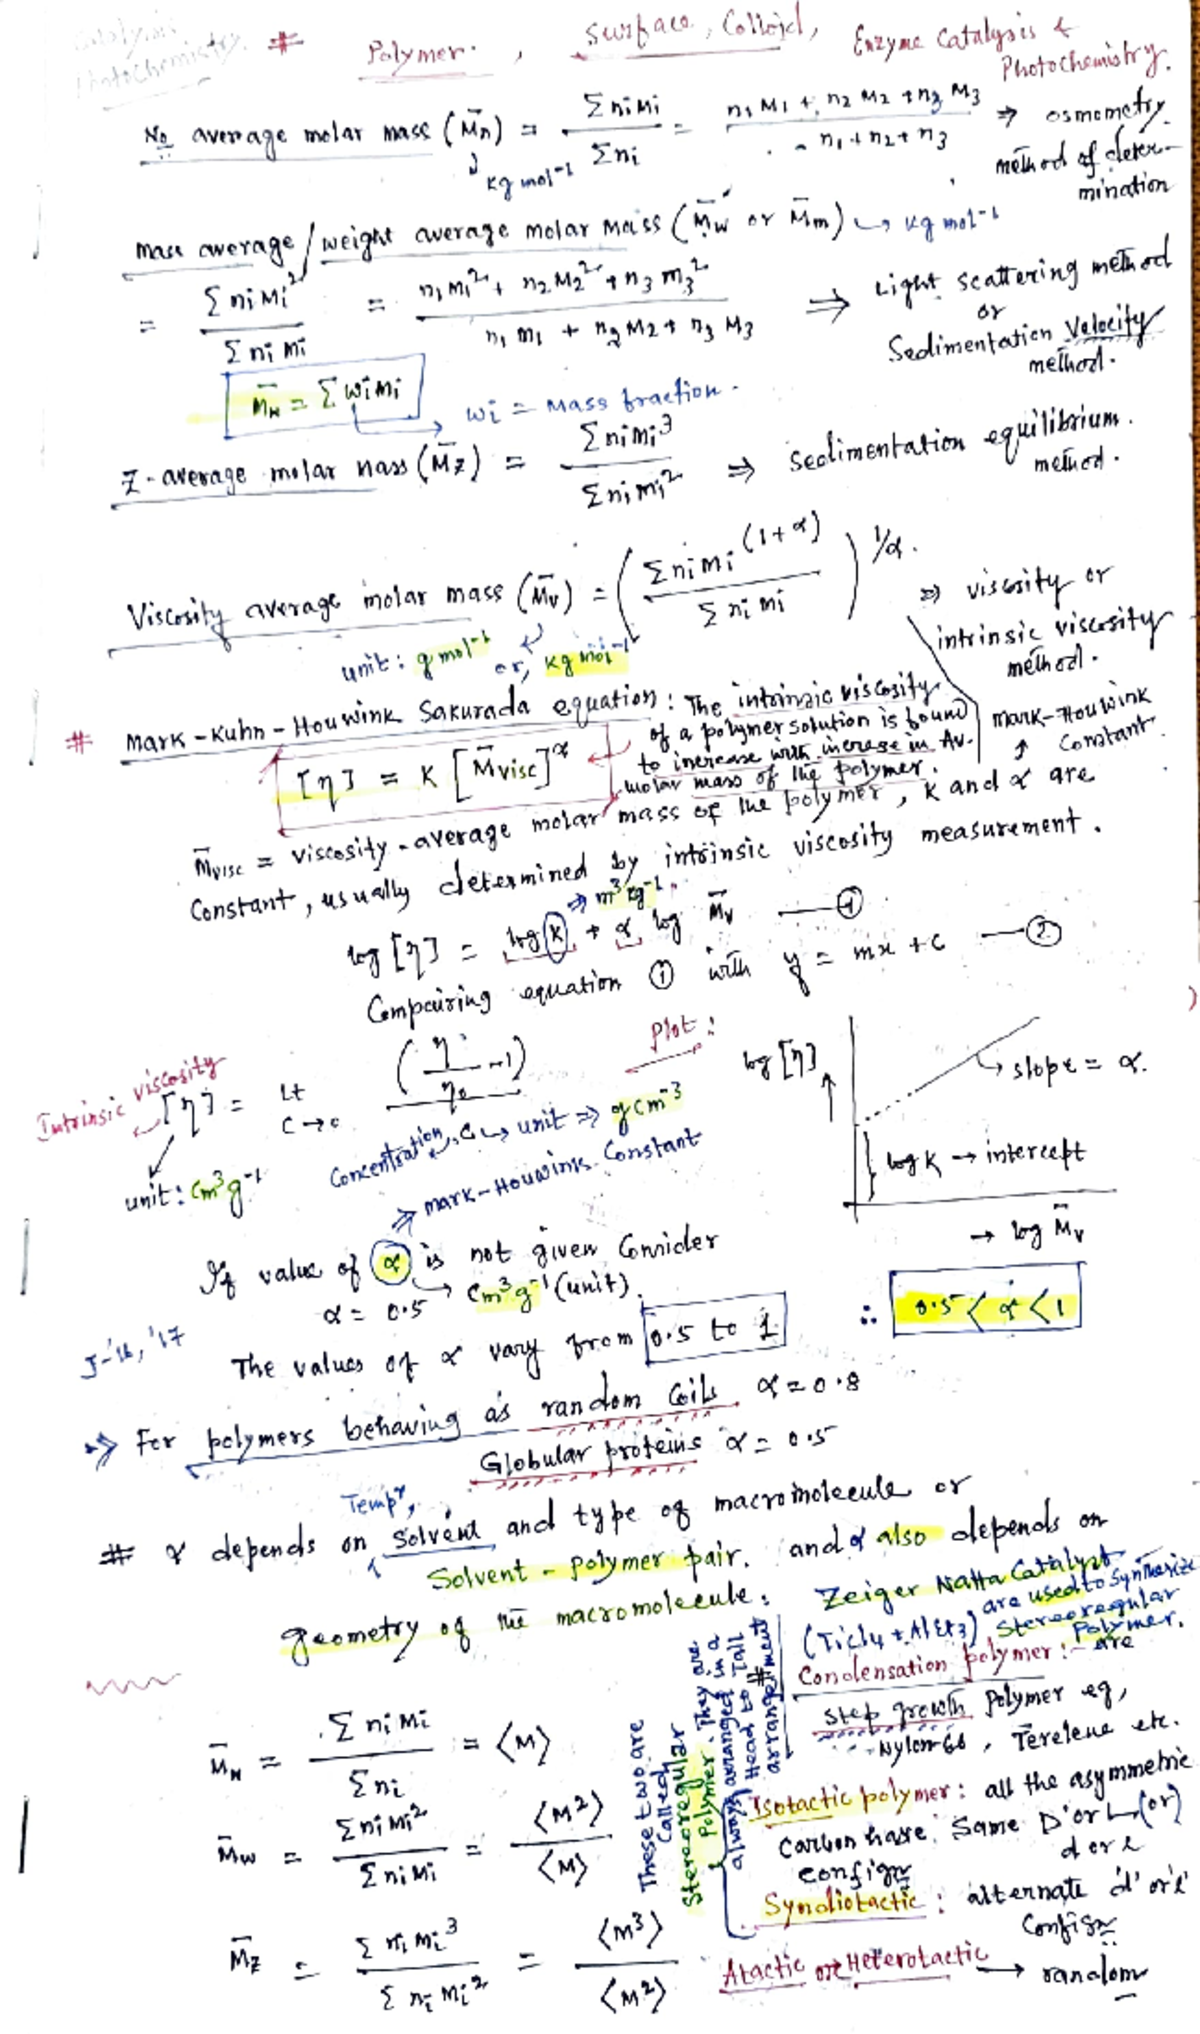 Catalysis
Photochemistry.
# Polymer. , Surface, Colloid, Enzyme Catalysis &
Photochemistry.
No average molar mass (M̄n) = Σ niMi / Σ ni = n1 M1 + n2 M2 + n3 M3 / n1 + n2 + n3 ⇒ osmometry
kg mol⁻¹
method of deter-
mination
Mass average / weight average molar mass (M̄w or M̄m) → kg mol⁻¹
= Σ niMi² / Σ niMi = n1M1² + n2M2² + n3M3² / n1M1 + n2M2 + n3M3 ⇒ Light scattering method
or
Sedimentation Velocity
method.
M̄w = Σ wiMi
wi = Mass fraction.
Z-average molar mass (M̄z) = Σ niMi³ / Σ niMi² ⇒ Sedimentation equilibrium
method.
Viscosity average molar mass (M̄v) = (Σ niMi^(1+α) / Σ niMi)^1/α. ⇒ viscosity or
intrinsic viscosity
method.
unit: g mol⁻¹ or, kg mol⁻¹
# Mark-Kuhn-Houwink Sakurada equation: The intrinsic viscosity
of a polymer solution is bound
to increase with increse in Av.
molar mass of the polymer.
Mark-Houwink
Constant.
[η] = K [M̄visc]^α
M̄visc = viscosity-average molar mass of the polymer, K and α are
Constant, usually determined by intrinsic viscosity measurement.
⇒ m³ kg⁻¹.
log [η] = log K + α log M̄v — ①
Compairing equation ① with y = mx + c — ②
Plot:
Intrinsic viscosity
[η] = Lt c→0 (η/η0 − 1) / Concentration, C → unit ⇒ g cm⁻³
unit: cm³g⁻¹
log [η] ↑
slope = α.
log K → intercept
→ log M̄v
⇒ Mark-Houwink Constant
If value of α is not given Consider
α = 0.5 → cm³g⁻¹ (unit).
J-'16, '17
The values of α vary from 0.5 to 1
∴ 0.5 < α < 1
⇒ For polymers behaving as random coils α = 0.8
Globular proteins α = 0.5
Tempr,
# α depends on solvent and type of macromolecule or
Solvent - polymer pair. and α also depends on
geometry of the macromolecule.
Zeiger Natta Catalyst
(TiCl4 + AlEt3) are used to Synthesize
Stereoregular
Polymer.
# Condensation polymer:- are
step growth polymer eg,
Nylon-66, Terelene etc.
M̄N = Σ niMi / Σ ni = ⟨M⟩
M̄w = Σ niMi² / Σ niMi = ⟨M²⟩ / ⟨M⟩
M̄z = Σ niMi³ / Σ niMi² = ⟨M³⟩ / ⟨M²⟩
These two are
Called
Stereoregular
Polymer. They are
always arranged in a
Head to Tail
arrangement
Isotactic polymer: all the asymmetric
Carbon have Same D or L (or)
d or l
config
Syndiotactic: alternate 'd' or 'l'
Config
Atactic or Heterotactic → random